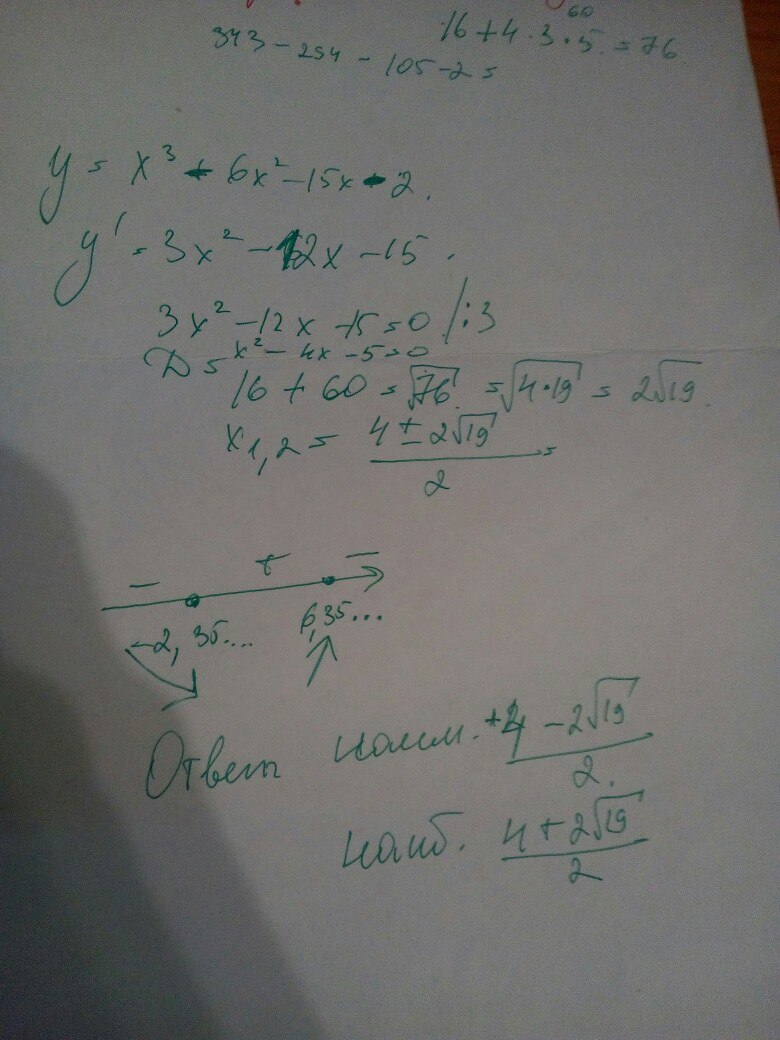 343 - 294 - 105 - 2 =
16 + 4 · 3 · 5 = 76
60
y = x³ - 6x² - 15x - 2.
y' = 3x² - 12x - 15.
3x² - 12x - 15 = 0 /:3
x² - 4x - 5 = 0
D = 16 + 60 = √76 = √4·19 = 2√19.
x1,2 = 4 ± 2√19 / 2 =
- + -
-2,35... 6,35...
Ответ наим. +4 - 2√19 / 2.
наиб. 4 + 2√19 / 2